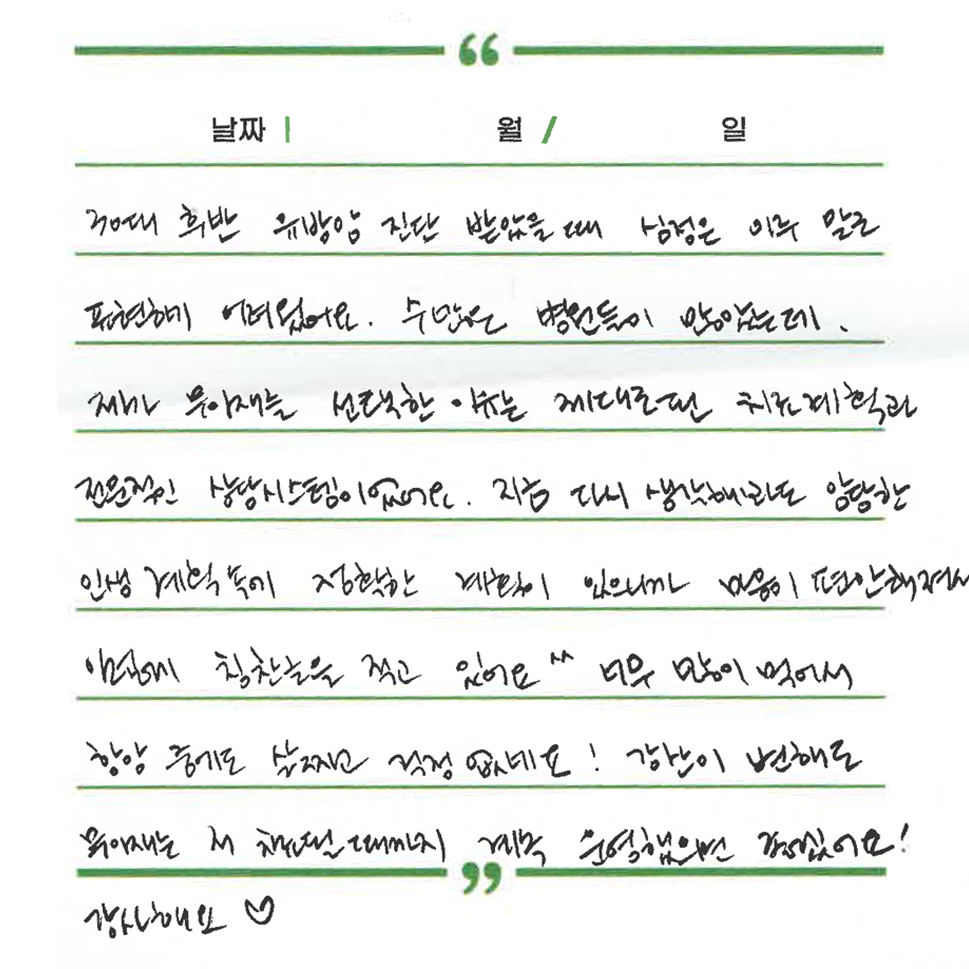 “
날짜 | 월 / 일
30대 후반 유방암 진단 받았을때 심정은 이루 말로
표현하기 어려웠어요. 수많은 병원들이 많았는데.
제가 우아재를 선택한 이유는 제대로된 치료계획과
전문적인 상담시스템이었어요. 지금 다시 생각해봐도 암담한
인생 계획 속에 정확한 계획이 있으니까 마음이 편안해져서
이렇게 칭찬글을 적고 있어요^^ 너무 많이 먹어서
항암 중에도 살찌고 걱정 없네요! 강산이 변해도
우아재는 저 될때까지 계속 운영했으면 좋겠어요!
”
감사해요♡